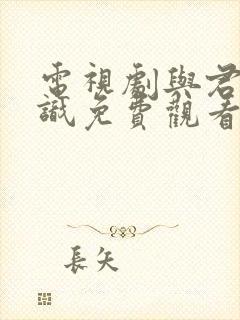 電視劇與君
識免費觀看
長矢